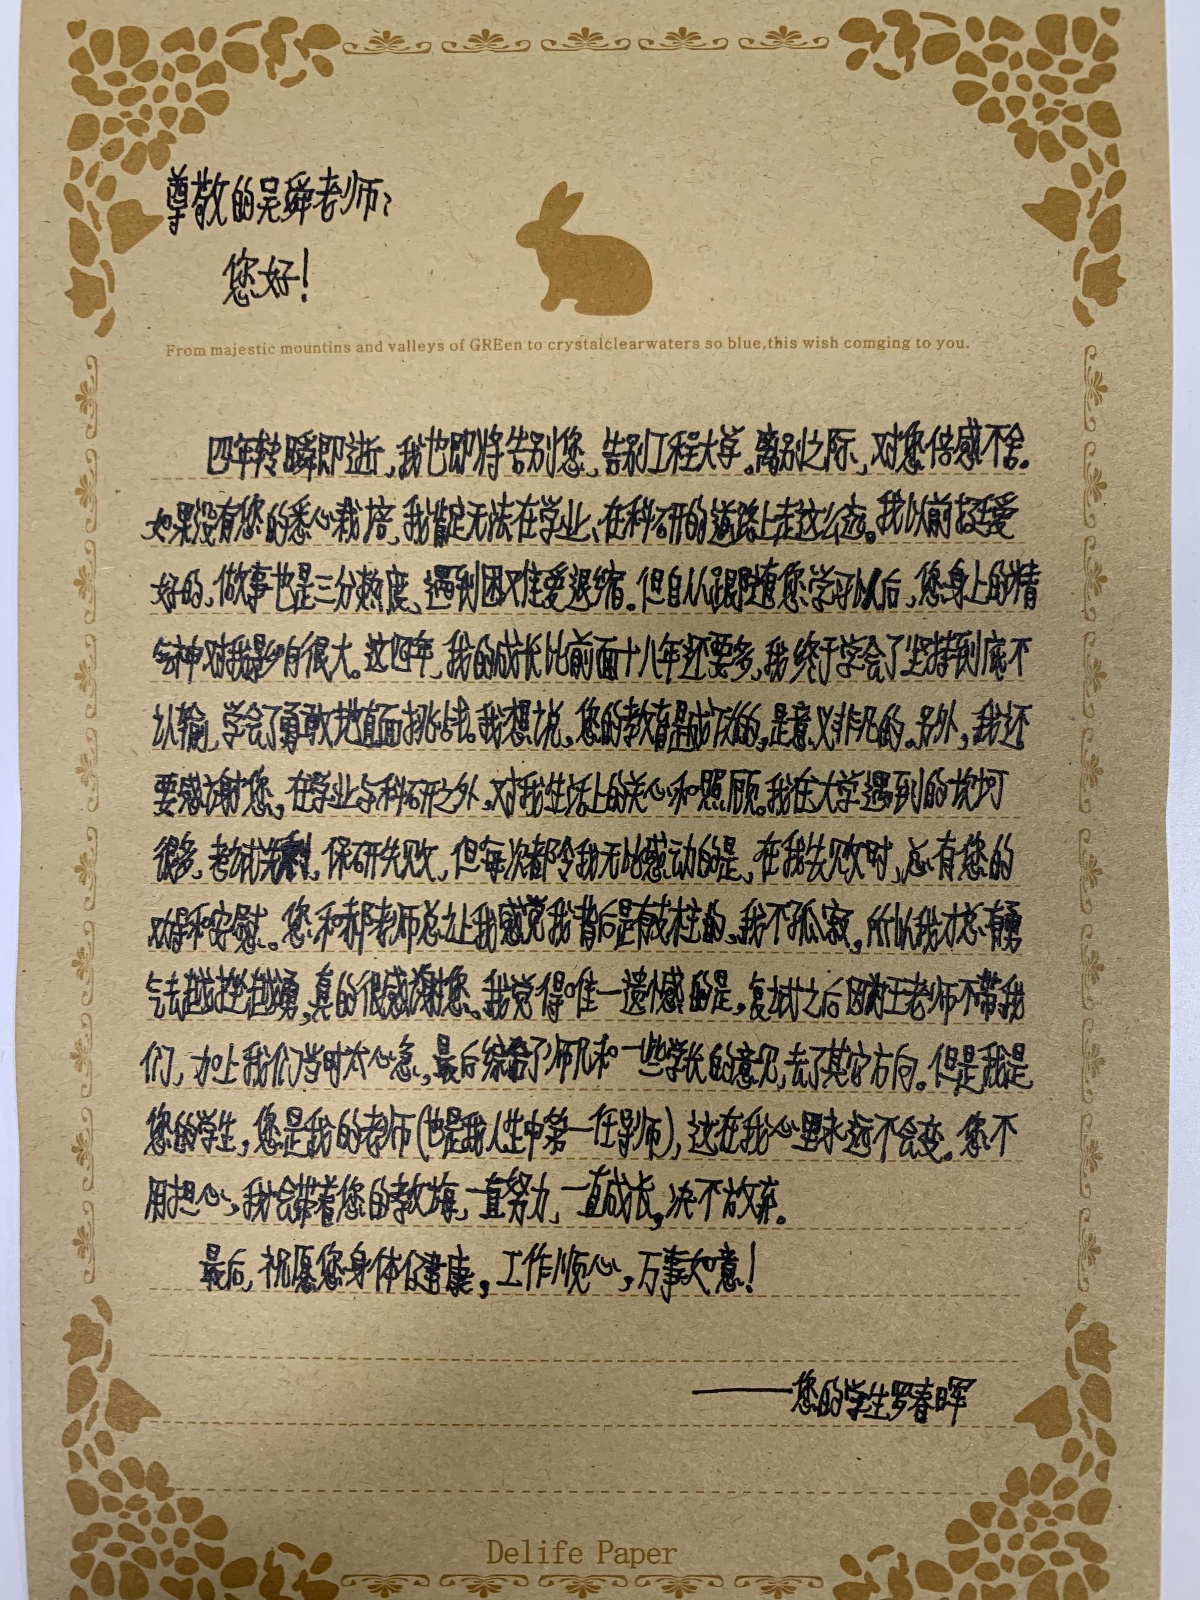 尊敬的吴舜老师:
您好!
From majestic mountins and valleys of GREen to crystalclearwaters so blue,this wish comging to you.
四年转瞬即逝,我也即将告别您、告别工程大学。离别之际,对您倍感不舍。
如果没有您的悉心栽培,我肯定无法在学业、在科研的道路上走这么远。我以前挺爱
好的,做事也是三分热度、遇到困难爱退缩。但自从跟随您学习以后,您身上的精
气神对我影响很大。这四年,我的成长比前面十八年还要多,我终于学会了坚持到底不
认输,学会了勇敢地直面挑战。我想说,您的教育是成功的,是意义非凡的。另外,我还
要感谢您,在学业与科研之外,对我生活上的关心和照顾。我在大学遇到的坎坷
很多,考试失利,保研失败,但每次都令我无比感动的是,在我失败时,总有您的
劝导和安慰。您和郝老师总让我感觉我背后是有支柱的、我不孤寂,所以我才总有勇
气去越挫越勇,真的很感谢您。我觉得唯一遗憾的是,复试之后因为王老师不带我
们,加上我们当时太心急,最后综合了师兄和一些学长的意见,去了其它方向。但是我是
您的学生,您是我的老师(也是我人生中第一任导师),这在我心里永远不会变。您不
用担心,我会带着您的教诲,一直努力,一直成长,决不放弃。
最后,祝愿您身体健康,工作顺心,万事如意!
——您的学生罗春晖
Delife Paper